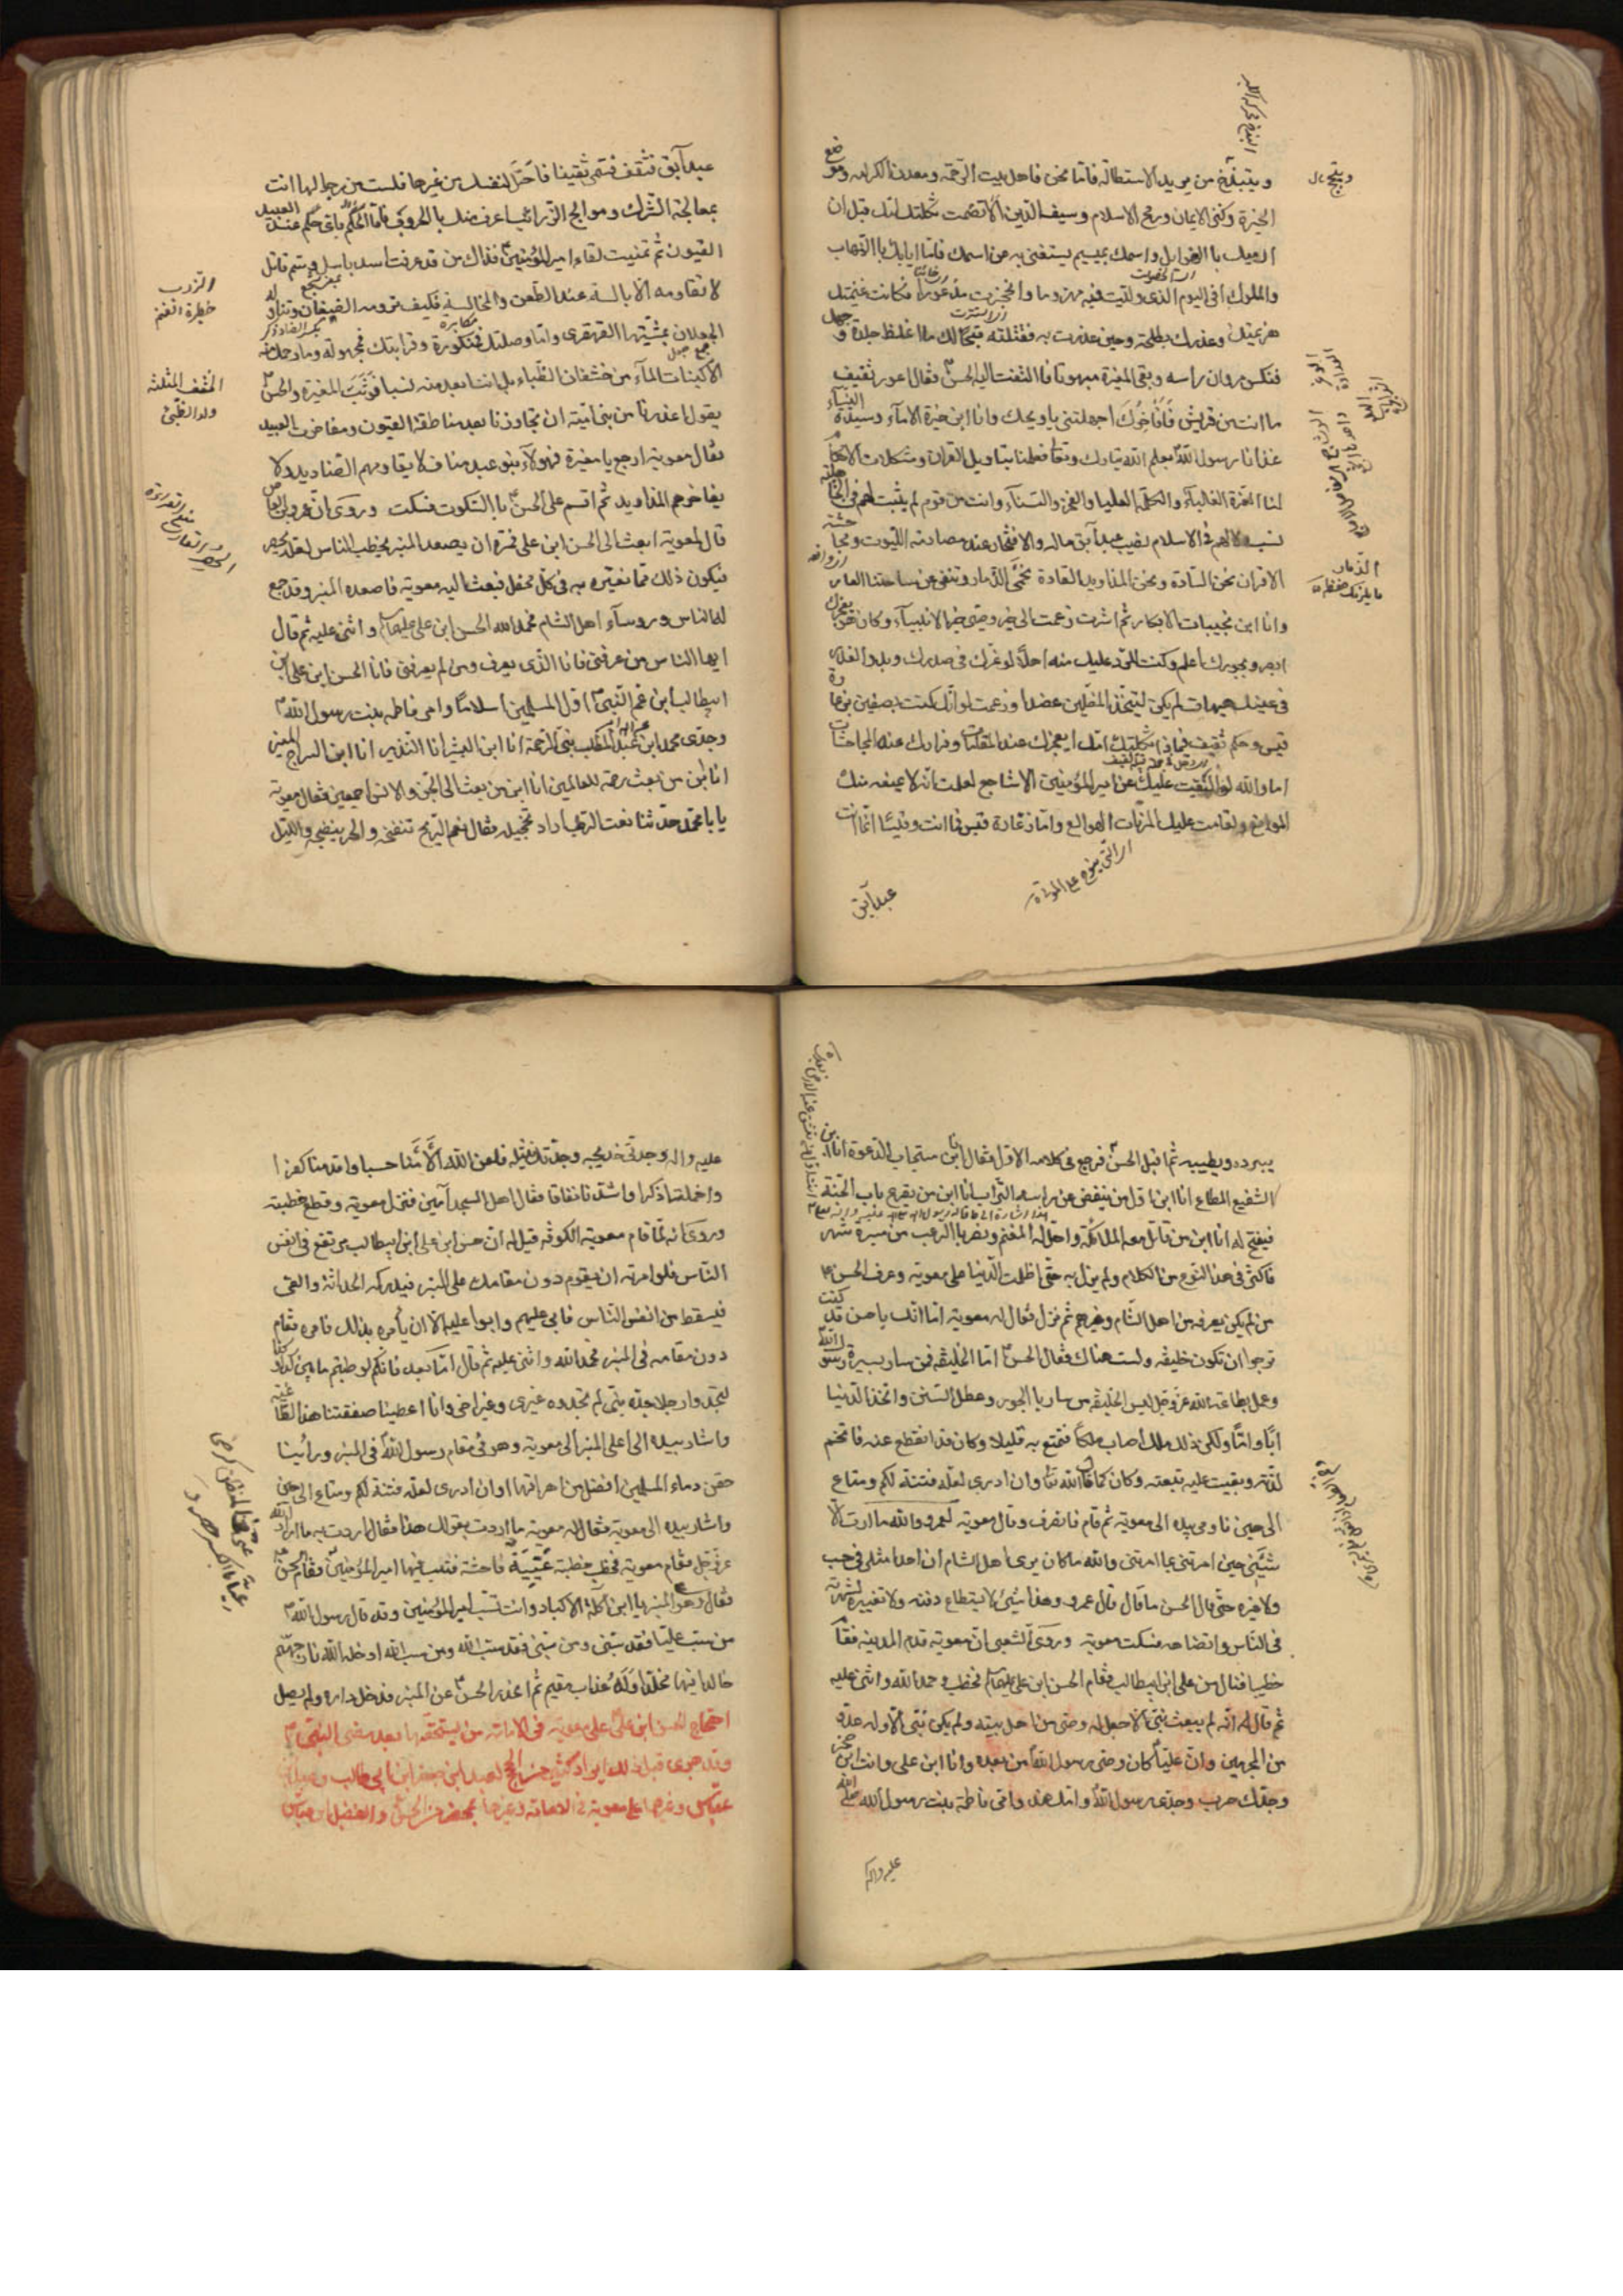 ويتبذخ من يريد الاستطالة فاما نحن فاهل بيت الرحمة ومعدن الكرامة وموضع
الخيرة وكنز الايمان ورمح الاسلام وسيف الدين الا تصمت ثكلتك امك قبل ان
ارميك بالهوايل واسمك بميسم يستغنى به عن اسمك فاما ايابك بالنهاب
والملوك افي اليوم الذي وليت فيه مهزوما وانحجزت مذعورا فكانت غنيمتك
هزيمتك وغدرك بطلحة وحين غدرت به فقتلته قبحا لك ما اغلظ جلدة وجهك
فنكس مروان راسه وبقي المغيرة مبهوتا فالتفت اليه الحسن فقال اعور ثقيف
ما انت من قريش فافاخرك اجهلتني يا ويحك وانا ابن خيرة الامآء وسيدة النسآء
غذانا رسول الله بعلم الله تبارك وتعالى فعلمنا تاويل القران ومشكلات الاحكام
لنا العزة الغلبآء والكلمة العليا والفخر والسنآء وانت من قوم لم يثبت لهم في الجاهلية
نسب ولا لهم في الاسلام نصيب عبد آبق ماله والافتخار عند مصادمة الليوث ومجاحشة
الاقران نحن السادة ونحن المذاويد القادة نحمي الذمار وننفي عن ساحتنا العار
وانا ابن نجيبات الابكار ثم اشرت زعمت الى خير وصي خير الانبيآء وكان هو بعجزك
ابصر وبجورك اعلم وكنت للرد عليك منه اهلا لوغرك في صدرك وبدو الغدر
في عينك هيهات لم يكن ليتخذ المضلين عضدا وزعمت لو انك كنت بصفين بزعارة
قيس وحلم ثقيف فبماذا ثكلتك امك ابعجزك عند المقامات وفرارك عند المجاحشات
اما والله لو التفت عليك من امير المؤمنين الاشاجع لعلمت انه لا يمنعه منك
الموانع ولقامت عليك المرنات الهوالع واما زعارة قيس فما انت وقيسا انما انت
عبد آبق
عبد آبق فثقف فتسمى ثقيفا فاحتل لنفسك من غيرها فلست من رجالها انت
بمعالجة الشرك وموالج الزرائب اعرف منك بالحروب فاما الحلم فاي حلم عند العبيد
القيون ثم تمنيت لقاء امير المؤمنين فذاك من قد عرفت اسد باسل وسم قاتل
لا تقاومه الابالسة عند الطعن والمخالسة فكيف ترومه الضبعان وتناوله
الجعلان بمشيتها القهقرى واما وصلتك فمنكورة وقرابتك فمجهولة وما رحمك منه
الا كبنات المآء من خشفان الظباء بل انت ابعد منه نسبا فوثب المغيرة والحسن
يقول اعذرنا من بني امية ان تجاوزنا بعد مناطقة القيون ومفاخرة العبيد
فقال معوية ارجع يا مغيرة فهولآء بنو عبد مناف لا يقاومهم الصناديد ولا
يفاخرهم المذاويد ثم اقسم على الحسن بالسكوت فسكت وروى ان عمرو بن العاص
قال لمعوية ابعث الى الحسن ابن علي فمره ان يصعد المنبر يخطب الناس لعله يحصر
فيكون ذلك مما نعيره به في كل محفل فبعث اليه معوية فاصعده المنبر وقد جمع
له الناس وروسآء اهل الشام فحمد الله الحسن ابن علي عليهما السلام واثنى عليه ثم قال
ايها الناس من عرفني فانا الذي يعرف ومن لم يعرفني فانا الحسن ابن علي بن
ابيطالب ابن عم النبي اول المسلمين اسلاما وامي فاطمة بنت رسول الله
وجدي محمد ابن عبد الله ابن عبد المطلب نبي الرحمة انا ابن البشير انا ابن النذير انا ابن السراج المنير
انا ابن من بعث رحمة للعالمين انا ابن من بعث الى الجن والانس اجمعين فقال معوية
يا با محمد حدثنا نعت الرطب اراد تخجيله فقال نعم الريح تنفخه والحر ينضجه والليل
الزرب
حظيرة الغنم
الخشف المثلثة
ولد الظبي
يبرده ويطيبه ثم اقبل الحسن فرجع في كلامه الاول فقال انا ابن مستجاب الدعوة انا ابن
الشفيع المطاع انا ابن اول من ينفض عن راسه التراب انا ابن من يقرع باب الجنة
فيفتح له انا ابن من قاتل معه الملائكة واحل له المغنم ونصر بالرعب من مسيرة شهر
فاكثر في هذا النوع من الكلام ولم يزل به حتى اظلمت الدنيا على معوية وعرف الحسن
من لم يكن يعرفه من اهل الشام وغيرهم ثم نزل فقال له معوية اما انك يا حسن قد كنت
ترجوا ان تكون خليفة ولست هناك فقال الحسن اما الخليفة فمن سار بسيرة رسول الله
وعمل بطاعة الله عز وجل ليس الخليفة من سار بالجور وعطل السنن واتخذ الدنيا
ابا واما ولكن ذلك ملك اصاب ملكا فتمتع به قليلا وكان قد انقطع عنه فاتخم
لذته وبقيت عليه تبعته وكان كما قال الله تعالى وان ادري لعله فتنة لكم ومتاع
الى حين فاومى بيده الى معوية ثم قام فانصرف وقال معوية لعمرو والله ما اردت الا
شيني حين امرتني بما امرتني والله ما كان يرى اهل الشام ان احدا مثلي في حسب
ولا غيره حتى قال الحسن ما قال قال عمرو وهذا شئ لا يستطاع دفنه ولا تغييره لشهرته
في الناس واتضاحه فسكت معوية وروى الشعبي ان معوية قدم المدينة فقام
خطيبا فنال من علي ابن ابيطالب فقام الحسن ابن علي عليهما السلام فخطب وحمد الله واثنى عليه
ثم قال له انه لم يبعث نبي الا جعل له وصي من اهل بيته ولم يكن نبي الا وله عدو
من المجرمين وان عليا كان وصي رسول الله من بعده وانا ابن علي وانت ابن صخر
وجدك حرب وجدي رسول الله وامك هند وامي فاطمة بنت رسول الله صلى الله
عليه واله
عليه واله وجدتي خديجة وجدتك نثيلة فلعن الله الأمنا حسبا واقدمنا كفرا
واخملنا ذكرا واشدنا نفاقا فقال اهل المسجد آمين فنزل معوية وقطع خطبته
وروى انه لما قام معوية الكوفة قيل له ان حسن ابن علي ابن ابيطالب مرتفع في انفس
الناس فلو امرته ان يقوم دون مقامك على المنبر فيدركه الحداثة والعي
فيسقط من انفس الناس فابى عليهم وابوا عليه الا ان يأمره بذلك فامره فقام
دون مقامه في المنبر فحمد الله واثنى عليه ثم قال اما بعد فانكم لو طلبتم ما بين كذا وكذا
لتجدوا رجلا جده نبي لم تجدوه غيري وغير اخي وانا اعطينا صفقتنا هذا الطاغية
واشار بيده الى اعلى المنبر الى معوية وهو في مقام رسول الله في المنبر ورأينا
حقن دماء المسلمين افضل من اهراقها وان ادري لعله فتنة لكم ومتاع الى حين
واشار بيده الى معوية فقال له معوية ما اردت بقولك هذا فقال اردت به ما اراد الله
عز وجل فقام معوية فخطب خطبة عيية فاحشة فثلب فيها امير المؤمنين فقام الحسن
فقال وهو على المنبر يا ابن آكلة الاكباد وانت تسب امير المؤمنين وقد قال رسول الله
من سب عليا فقد سبني ومن سبني فقد سب الله ومن سب الله ادخله الله نار جهنم
خالدا فيها مخلدا وله عذاب مقيم ثم انحدر الحسن عن المنبر فدخل داره ولم يصل
احتجاج الحسن ابن علي على معوية في الامامة من يستحقها بعد مضي النبي
وقد جرى قبل ذلك ايراد كثير من الحجج لعبد الله ابن جعفر ابن ابي طالب وعبد الله
عباس وغيرهما على معوية في الامامة وغيرها بمحضر من الحسن والفضل ابن عباس